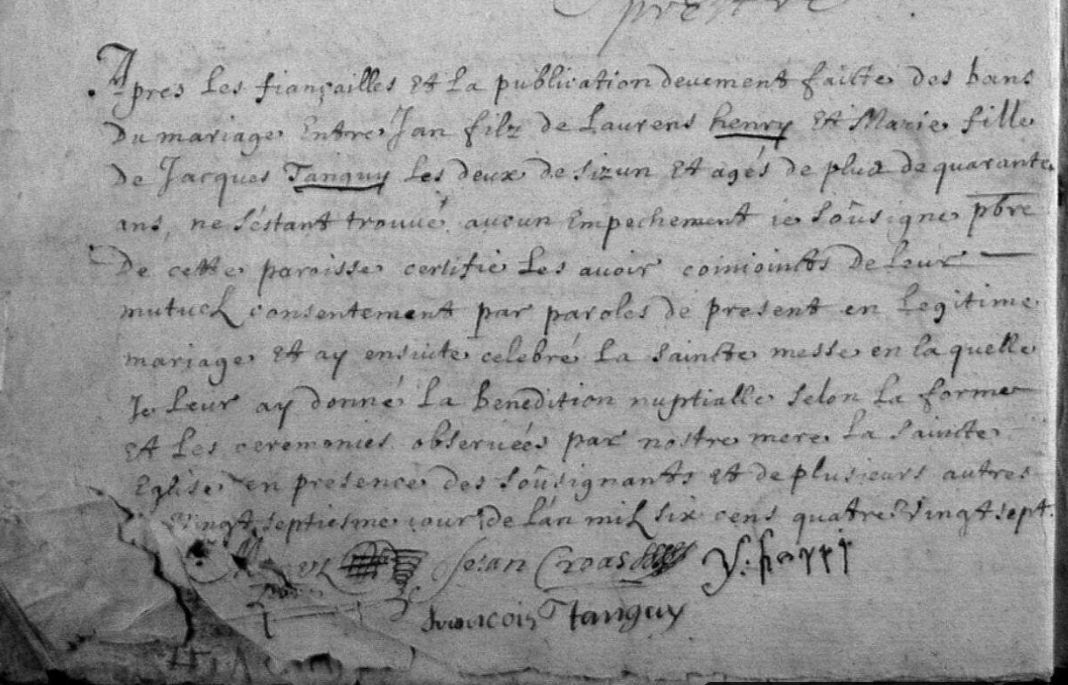 prestre
Apres les fiançailles et la publication deuement faicte des bans
du mariage Entre Jan filz de Laurens henry et Marie fille
de Jacques Tanguy les deux de sizun et agés de plus de quarante
ans, ne s'éstant trouué aucun Empechement ie soûsigne pbre
De cette paroisse certifie les auoir coinioincts de leur
mutuel consentement par paroles de present en legitime
mariage et ay ensuite celebré la saincte messe en la quelle
Je leur ay donné la benedition nuptialle selon la forme
et les ceremonies obseruées par nostre mere la saincte
Eglise en presence des soûsignants et de plusieurs autres
vingt septiesme iour de l'an mil six cens quatre vingt sept.
Jean Croas Y: henri
francois Tanguy